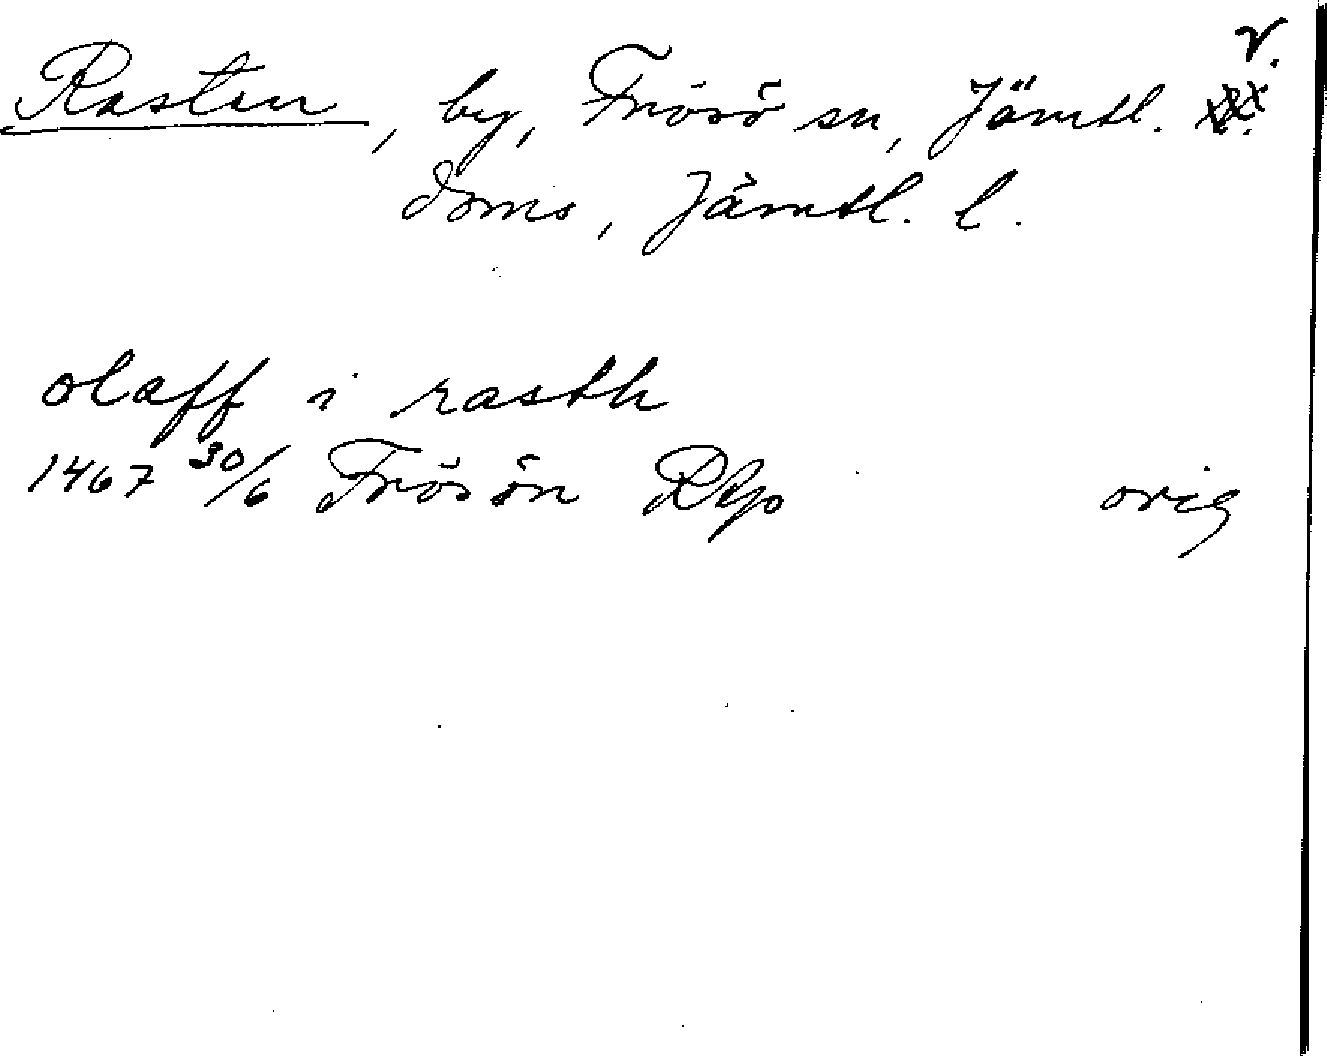 Rasten, by, Frösö sn, Jämtl. v.
doms, Jämtl. l.
olaff i rasth
1467 30/6 Frösön RAp orig